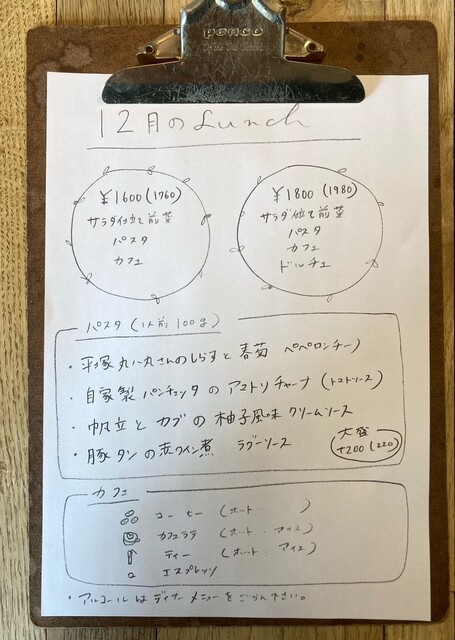 penco
12月のLunch
¥1600(1760)
サラダ仕立て前菜
パスタ
カフェ
¥1800(1980)
サラダ仕立て前菜
パスタ
カフェ
ドルチェ
パスタ(1人前 100g)
・平塚丸八丸さんのしらすと春菊 ペペロンチーノ
・自家製パンチェッタのアマトリチャーナ(トマトソース)
・帆立とカブの柚子風味クリームソース
・豚タンの赤ワイン煮 ラグーソース
大盛
+200(220)
カフェ
コーヒー(ホット・ )
カフェラテ(ホット・アイス)
ティー(ホット・アイス)
エスプレッソ
・アルコールはディナーメニューをごらん下さい。